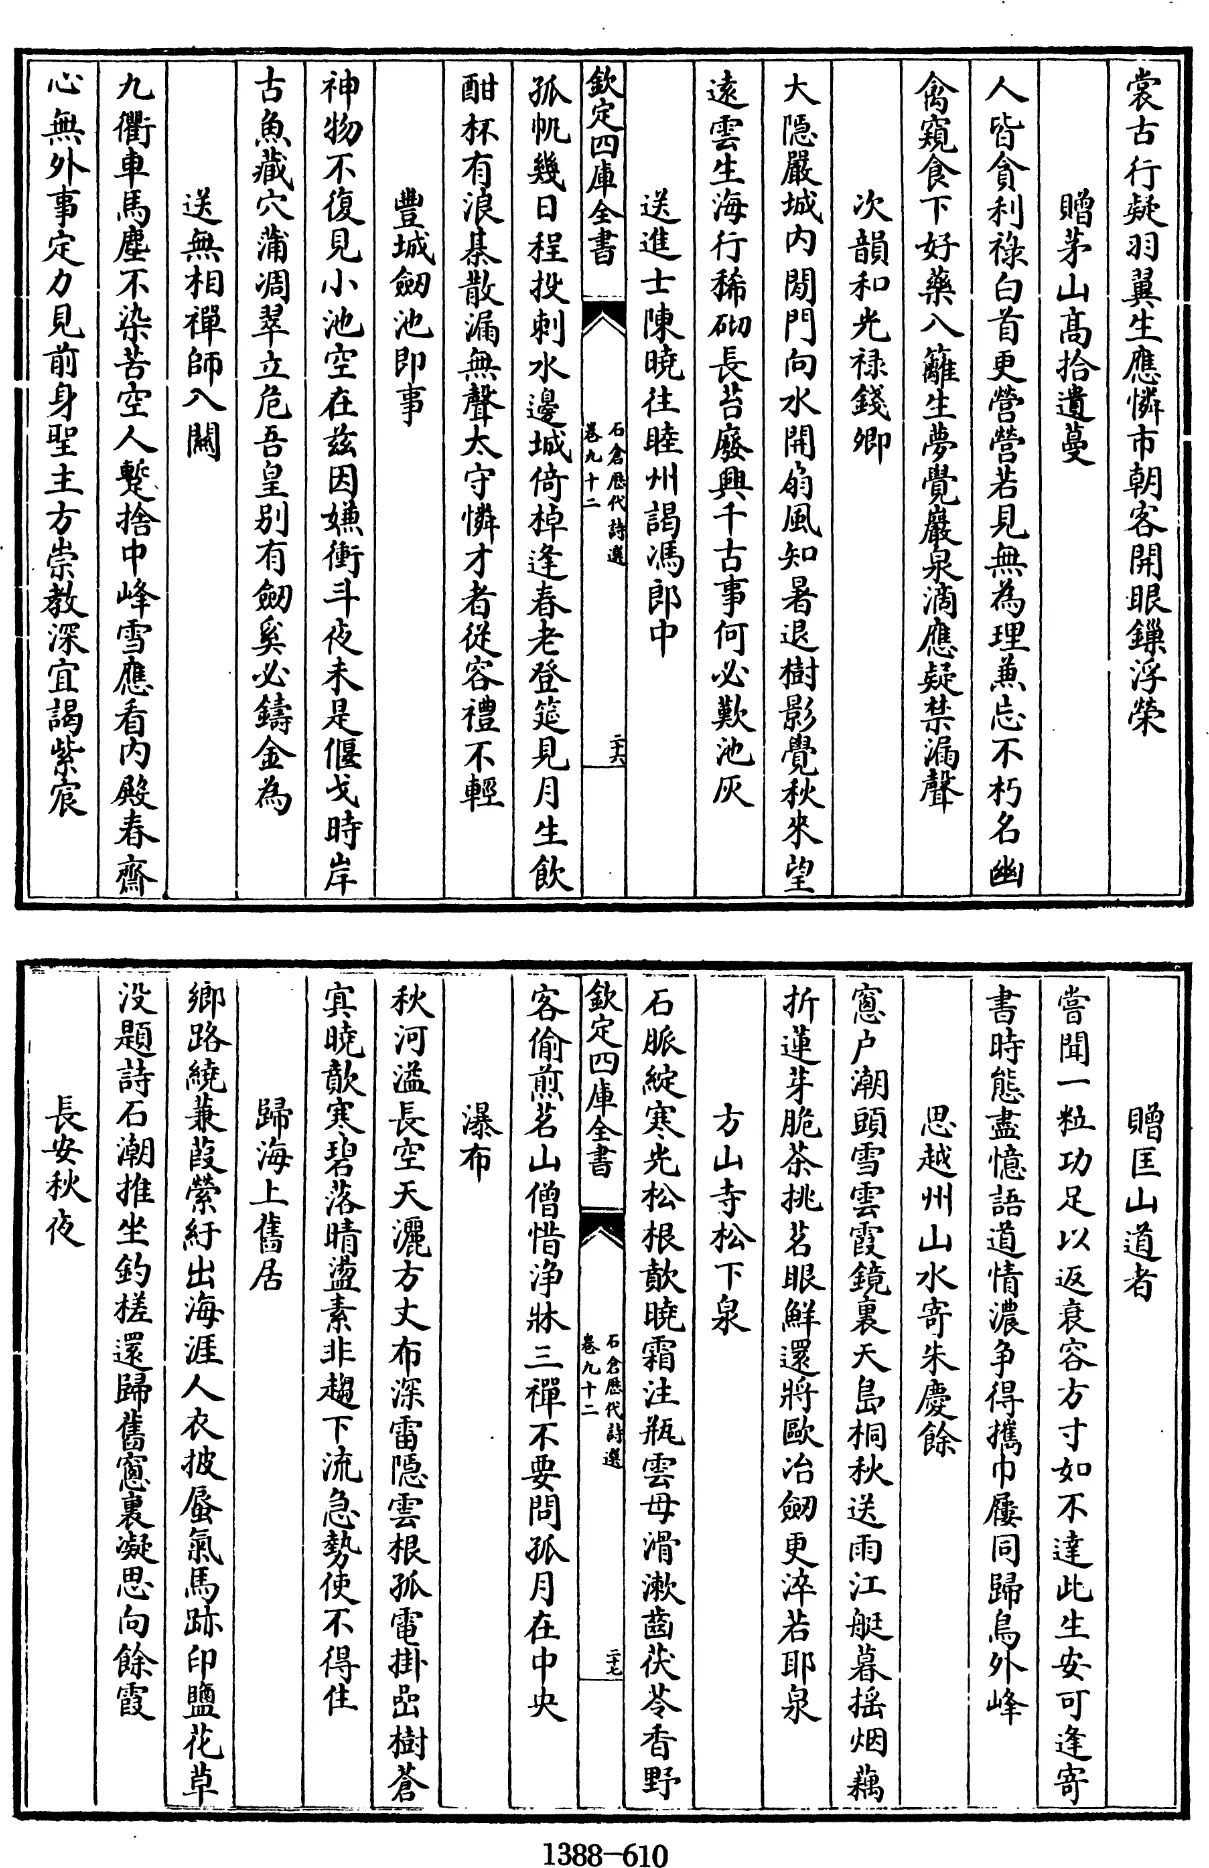 裳古行疑羽翼生應憐市朝客開眼鏁浮榮
贈茅山髙拾遺蔓
人皆貪利祿白首更營營若見無為理兼忘不朽名幽
禽窺食下好藥入籬生夢覺巖泉滴應疑禁漏聲
次韻和光禄錢卿
大隠嚴城内閒門向水開扇風知暑退樹影覺秋來望
逺雲生海行稀砌長苔廢興千古事何必歎池灰
送進士陳曉往睦州謁馮郎中
欽定四庫全書
石倉歴代詩選
卷九十二
二十六
孤帆幾日程投刺水邊城倚棹逢春老登筵見月生飲
酣杯有浪棊散漏無聲太守憐才者從容禮不輕
豐城劒池即事
神物不復見小池空在兹因嫌衝斗夜未是偃戈時岸
古魚藏穴蒲凋翠立危吾皇别有劒奚必鑄金為
送無相禪師入關
九衢車馬塵不染苦空人蹔捨中峰雪應看内殿春齋
心無外事定力見前身聖主方崇教深宜謁紫宸
贈匡山道者
嘗聞一粒功足以返衰容方寸如不達此生安可逢寄
書時態盡憶語道情濃爭得攜巾屨同歸鳥外峰
思越州山水寄朱慶餘
窻户潮頭雪雲霞鏡裏天島桐秋送雨江艇暮摇烟藕
折蓮芽脆茶挑茗眼鮮還將歐冶劒更淬若耶泉
方山寺松下泉
石脈綻寒光松根歕曉霜注瓶雲母滑漱齒茯苓香野
欽定四庫全書
石倉歴代詩選
卷九十二
二十七
客偷煎茗山僧惜浄牀三禪不要問孤月在中央
瀑布
秋河溢長空天灑萬丈布深雷隠雲根孤電掛嵒樹蒼
㝠曉歕寒碧落晴盪素非趨下流急勢使不得住
歸海上舊居
鄉路繞蒹葭縈紆出海涯人衣披蜃氣馬跡印鹽花草
没題詩石潮推坐釣槎還歸舊窻裏凝思向餘霞
長安秋夜
1388-610